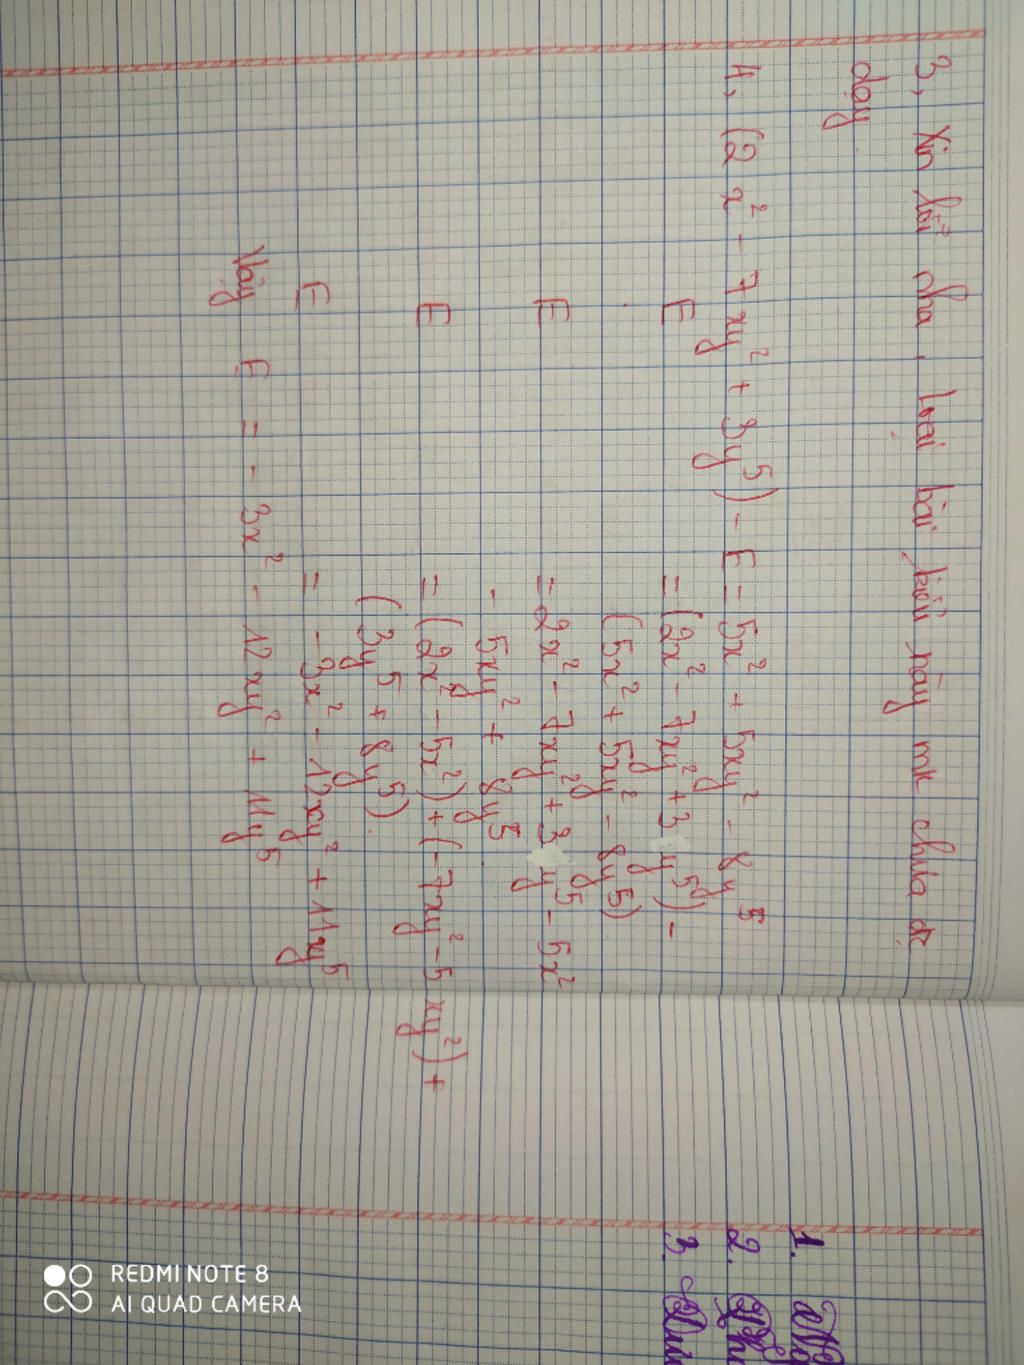 3, Xin lỗi nha, loại bài kiểu này mk chưa đc
dạy
4, (2x² - 7xy² + 3y⁵) - E = 5x² + 5xy² - 8y⁵
E = (2x² - 7xy² + 3y⁵) -
(5x² + 5xy² - 8y⁵)
E = 2x² - 7xy² + 3y⁵ - 5x²
- 5xy² + 8y⁵
E = (2x² - 5x²) + (-7xy² - 5xy²) +
(3y⁵ + 8y⁵)
E = -3x² - 12xy² + 11y⁵
Vậy E = -3x² - 12xy² + 11y⁵
1.
2.
3.
REDMI NOTE 8
AI QUAD CAMERA